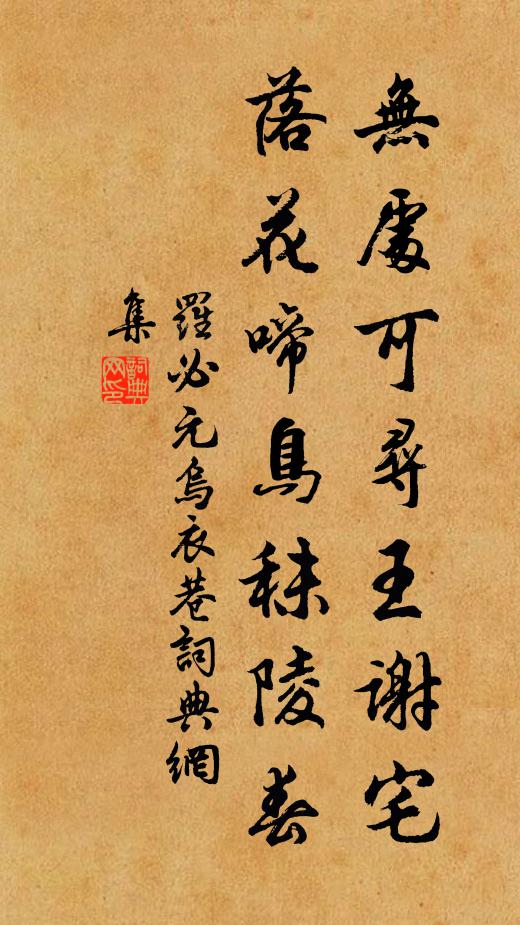 無處可尋王謝宅
落花啼鳥秣陵春
羅必元烏衣巷詞典網
集
詞典
网印